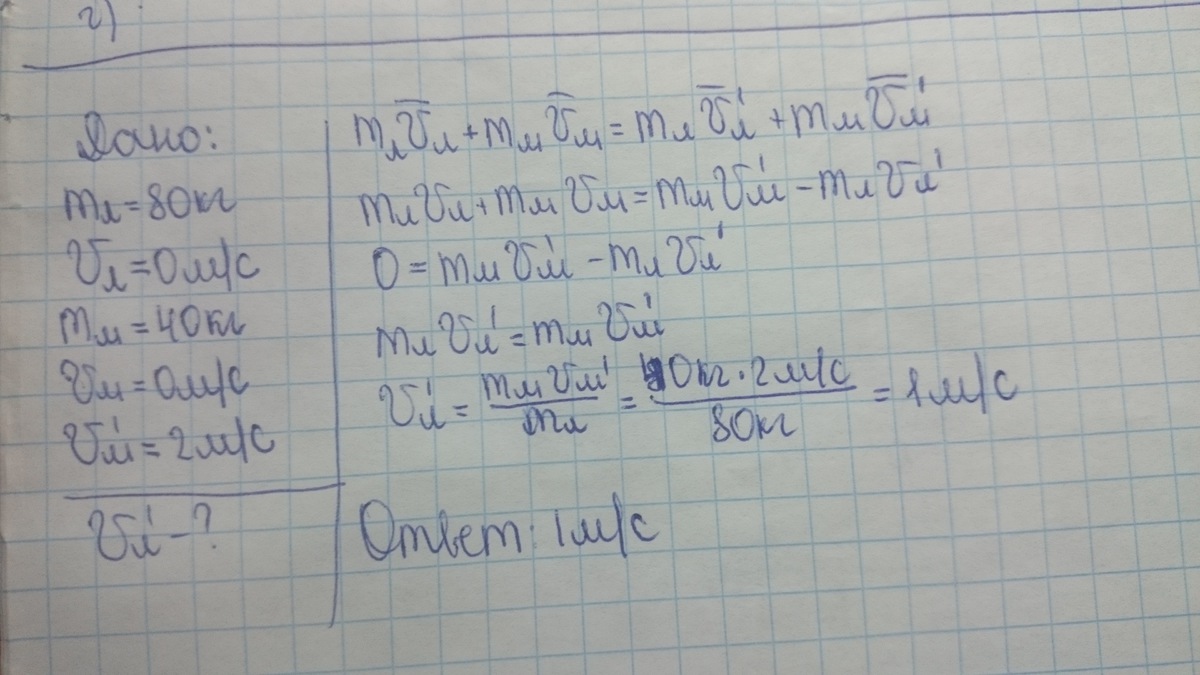 2)
Дано:
mл = 80кг
υл = 0м/с
mм = 40кг
υм = 0м/с
υм' = 2м/с
υл' - ?
mл υ̅л + mм υ̅м = mл υ̅л' + mм υ̅м'
mл υл + mм υм = mм υм' - mл υл'
0 = mм υм' - mл υл'
mл υл' = mм υм'
υл' = mм υм' / mл = 40кг · 2м/с / 80кг = 1м/с
Ответ: 1м/с